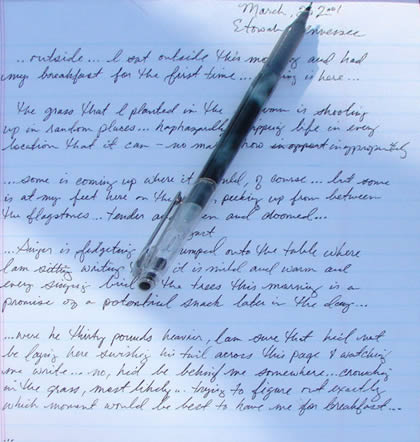 March, 2001
Etowah, Tennessee
...outside... I sat outside this mo and had
my breakfast for the first time... ing is here...
the grass that I planted in the is shooting
up in random places... haphazardly apping life in every
location that it can - no matter how inappropriately
...some is coming up where it should, of course... but some
is at my feet here on the , peeking up from between
the flagstones... tender and doomed...
...Ringer is fidgeting jumped onto the table where
I am sitting writing it is mild and warm and
every singing bird the trees this morning is a
promise of a potential snack later in the day...
...were he thirty pounds heavier, I am sure that he'd not
be laying here swishing his tail across this page & watching
me write... no, he'd be behind me somewhere... crouching
in the grass, most likely... trying to figure out exactly
which moment would be best to have me for breakfast...
...